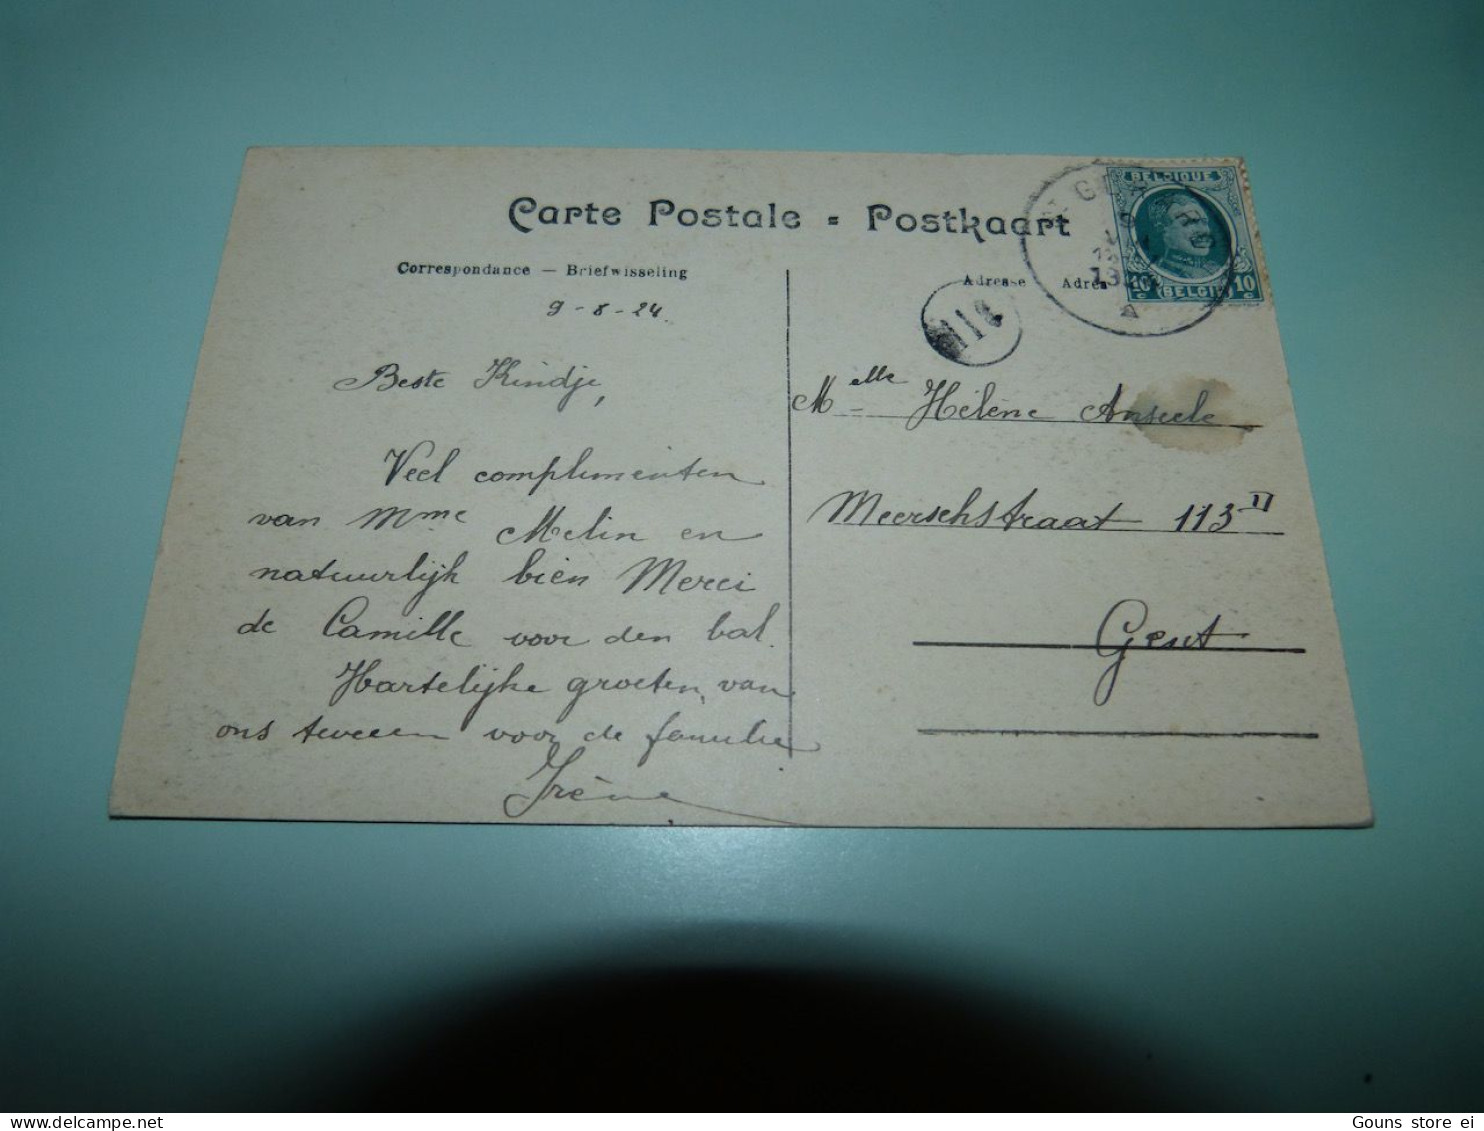 Carte Postale = Postkaart
Correspondance — Briefwisseling
9-8-24.
Beste Kindje,
Veel complimenten
van Mme Melin en
natuurlijk bien Merci
de Camille voor den bal.
Hartelijke groeten van
ons tweeen voor de familie
Irène
BELGIQUE
10 BELGIË 10
Adresse Adres
Melle Hélène Anseele
Meerschstraat 113 II
Gent
Gouns store ei